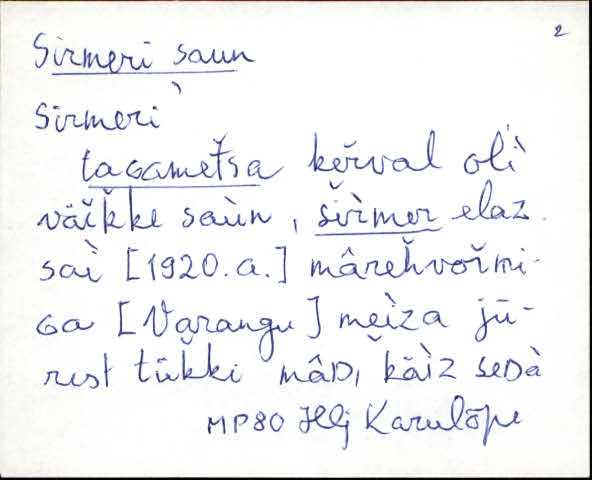 2
Sirmeri saun
Sirmeri
tagametsa kõrval oli
väikke saùn, sirmer elaz.
sai [1920.a.] mârehvormi-
Ga [Varangu] meìza jū-
rest tükki mâD, käiz seDà
MP80 Hlj Karulõpe